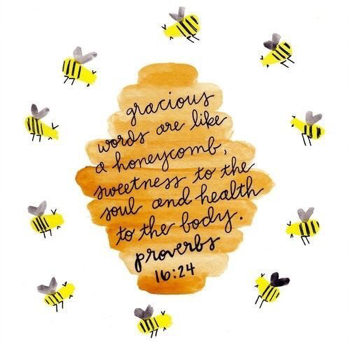 gracious
words are like
a honeycomb,
sweetness to the
soul and health
to the body.
proverbs
16:24